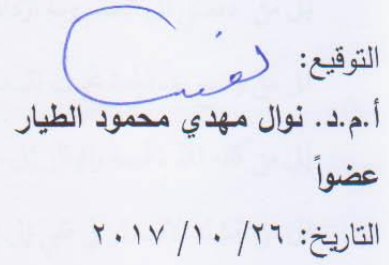 التوقيع:
أ.م.د. نوال مهدي محمود الطيار
عضواً
التاريخ: ٢٦/ ١٠/ ٢٠١٧